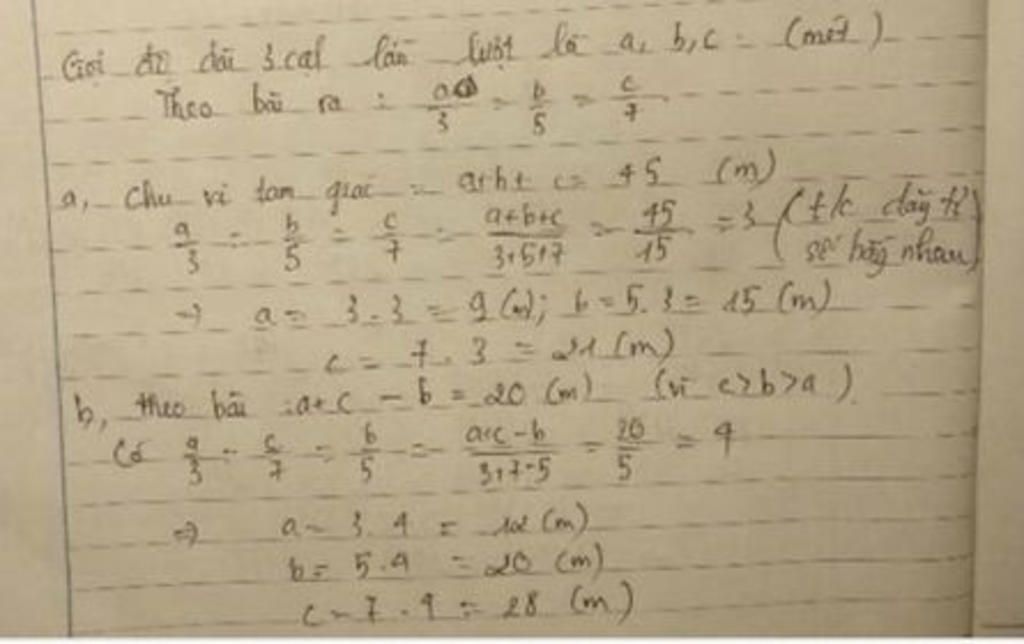 Gọi độ dài 3 cạh lần lượt là a, b, c (mét)
Theo bài ra : a/3 = b/5 = c/7
a, Chu vi tam giác = a+b+c = 45 (m)
a/3 = b/5 = c/7 = (a+b+c)/(3+5+7) = 45/15 = 3 (t/c dãy tỉ số bằg nhau)
=> a = 3.3 = 9 (m); b = 5.3 = 15 (m)
c = 7.3 = 21 (m)
b, theo bài : a+c - b = 20 (m) (vì c>b>a)
Có a/3 = c/7 = b/5 = (a+c-b)/(3+7-5) = 20/5 = 4
=> a = 3.4 = 12 (m)
b = 5.4 = 20 (m)
c = 7.4 = 28 (m)